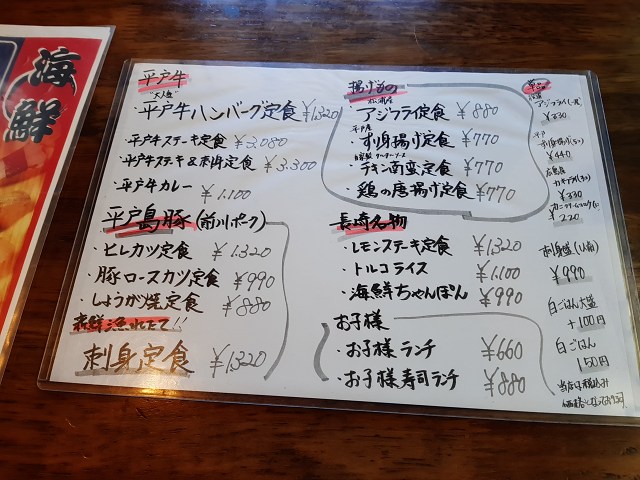 海鮮
平戸牛
"大人気"
・平戸牛ハンバーグ定食 ¥1,320
・平戸牛ステーキ定食 ¥3,080
・平戸牛ステーキ&刺身定食 ¥3,300
・平戸牛カレー ¥1,100
平戸島豚(前川ポーク)
・ヒレカツ定食 ¥1,320
・豚ロースカツ定食 ¥990
・しょうが焼定食 ¥880
新鮮漁れたて!!
刺身定食 ¥1,320
揚げもの
松浦産
・アジフライ定食 ¥880
平戸産
・すり身揚げ定食 ¥770
自家製タルタルソース
・チキン南蛮定食 ¥770
・鶏の唐揚げ定食 ¥770
長崎名物
・レモンステーキ定食 ¥1,320
・トルコライス ¥1,100
・海鮮ちゃんぽん ¥990
お子様
・お子様ランチ ¥660
・お子様寿司ランチ ¥880
単品
アジフライ(一枚)
¥330
平戸
すり身揚げ(3コ)
¥440
広島産
カキフライ(3コ)
¥330
¥220
刺身盛(1人前)
¥990
白ごはん大盛
+100円
白ごはん
150円
当店は税込み
価格となっております